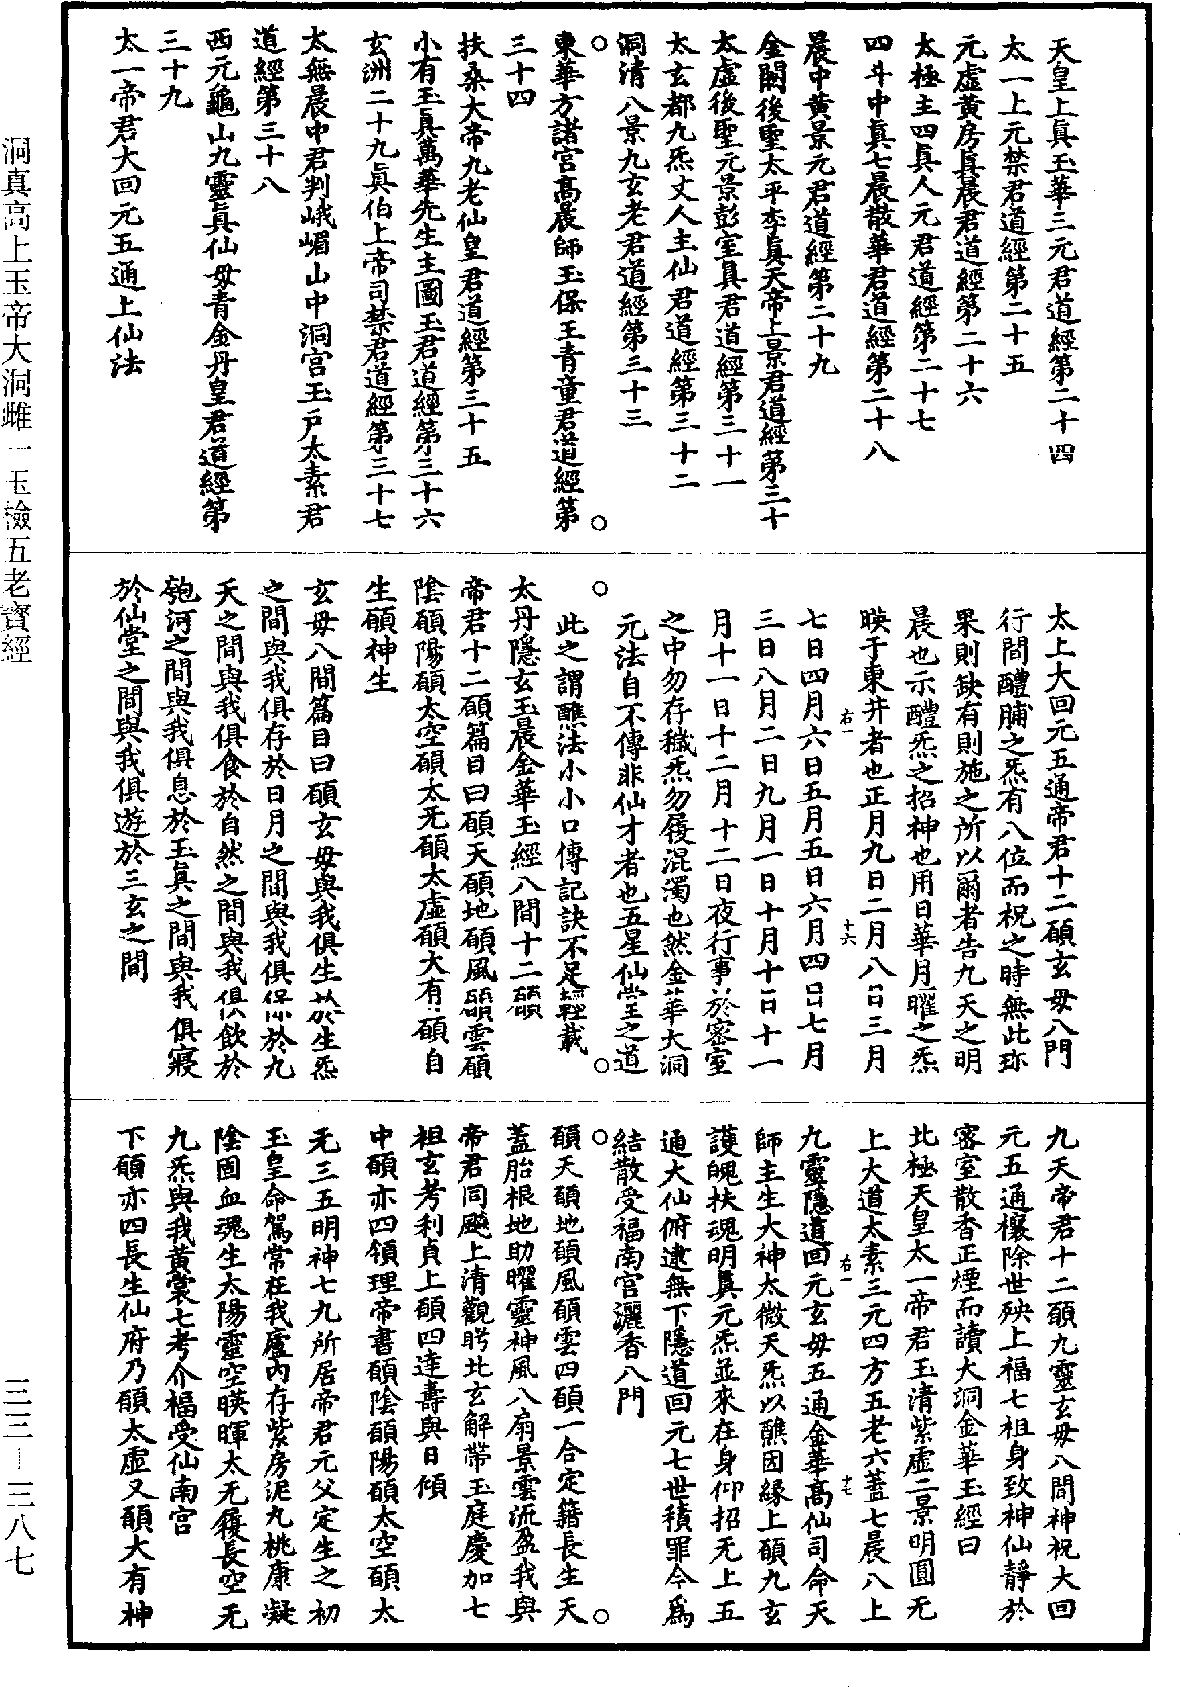 天皇上眞玉華三元君道經第二十四
太一上元禁君道經第二十五
元虛黃房眞晨君道經第二十六
太極主四眞人元君道經第二十七
四斗中眞七晨散華君道經第二十八
晨中黃景元君道經第二十九
金闕後聖太平李眞天帝上景君道經第三十
太虛後聖元景彭室眞君道經第三十一
太玄都九炁丈人主仙君道經第三十二
洞清八景九玄老君道經第三十三
東華方諸宮高晨師玉保王青童君道經第
三十四
扶桑大帝九老仙皇君道經第三十五
小有玉眞萬華先生主圖玉君道經第三十六
玄洲二十九眞伯上帝司禁君道經第三十七
太無晨中君判峨嵋山中洞宮玉戶太素君
道經第三十八
西元龜山九靈眞仙母青金丹皇君道經第
三十九
太一帝君大回元五通上仙法
太上大回元五通帝君十二願玄母八門
行間醴脯之炁有八位而祝之時無此珍
果則缺有則施之所以爾者告九天之明
晨也示醴炁之招神也用日華月曜之炁
暎于東井者也正月九日二月八日三月
七日四月六日五月五日六月四日七月
三日八月二日九月一日十月十日十一
月十一日十二月十二日夜行事於密室
之中勿存穢炁勿履混濁也然金華大洞
元法自不傳非仙才者也五星仙堂之道
此之謂醮法小小口傳記訣不足輕載
太丹隱玄玉晨金華玉經八間十二願
帝君十二願篇目曰願天願地願風願雲願
陰願陽願太空願太无願太虛願大有願自
生願神生
玄母八間篇目曰願玄母與我俱生於生炁
之間與我俱存於日月之間與我俱保於九
天之間與我俱食於自然之間與我俱飲於
匏河之間與我俱息於玉眞之間與我俱寢
於仙堂之間與我俱遊於三玄之間
九天帝君十二願九靈玄母八間神祝大回
元五通禳除世殃上福七祖身致神仙靜於
密室散香正煙而讀大洞金華玉經曰
北極天皇太一帝君玉清紫虛二景明圓无
上大道太素三元四方五老六蓋七晨八上
九靈隱道回元玄母五通金華高仙司命天
師主生大神太微天炁以醮因緣上願九玄
護魄扶魂明眞元炁並來在身仰招无上五
通大仙俯逮無下隱道回元七世積罪今爲
結散受福南宮灑香八門
願天願地願風願雲四願一合定籍長生天
蓋胎根地助曜靈神風八扇景雲流盈我與
帝君同飈上清觀眄北玄解帶玉庭慶加七
祖玄考利貞上願四達壽與日傾
中願亦四領理帝書願陰願陽願太空願太
无三五明神七九所居帝君元父定生之初
玉皇命駕常在我廬內存紫房泥丸桃康凝
陰固血魂生太陽靈空暎暉太无鎭長空无
九炁與我黃裳七考介福受仙南宮
下願亦四長生仙府乃願太虛又願大有神
右一
十六
右一
十七
洞真高上玉帝大洞雌一玉檢五老寶經
三三—三八七